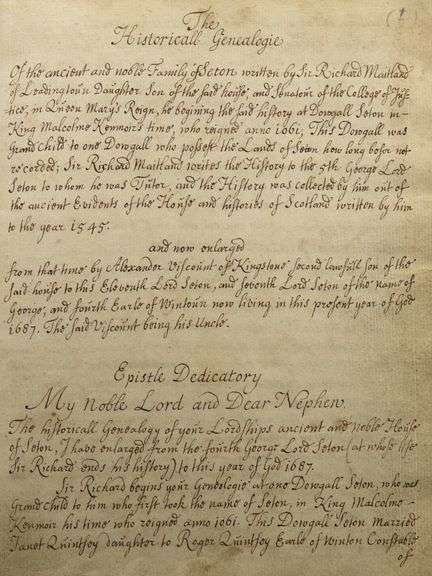 (1
The
Historicall Genealogie
Of the ancient and noble Family of Seton written by Sir Richard Maitland
of Leadingtoun Daughter Son of the said house, and Senatour of the College of Jus-
tice, in Queen Mary's Reign, he begining the said history at Dowgall Seton in
King Malcolme Kenmoir's time, who reigned anno 1061, This Dowgall was
Grand Child to one Dowgall who possest the Lands of Seton how long befor not
recorded; Sir Richard Maitland writes the History to the 5th George Lord
Seton to whom he was Tutor, and the History was collected by him out of
the ancient Evidents of the House and histories of Scotland written by him
to the year 1545.
and now enlarged
from that time by Alexander Viscount of Kingstone second lawfull son of the
said house to this Eleventh Lord Seton, and seventh Lord Seton of the name of
George, and fourth Earle of Wintoun now living in this present year of God
1687. The said Viscount being his Uncle.
Epistle Dedicatory
My Noble Lord and Dear Nephew.
The historicall Genealogy of your Lordships ancient and noble House
of Seton, I have enlarged from the fourth George Lord Seton (at whose life
Sir Richard ends his history) to this year of God 1687.
Sir Richard begins your Geneologie at one Dowgall Seton, who was
Grand child to him who first took the name of Seton, in King Malcolme
Kenmoir his time who reigned anno 1061. This Dowgall Seton married
Janet Quintsoy daughter to Roger Quintsoy Earle of Winton Constable
of